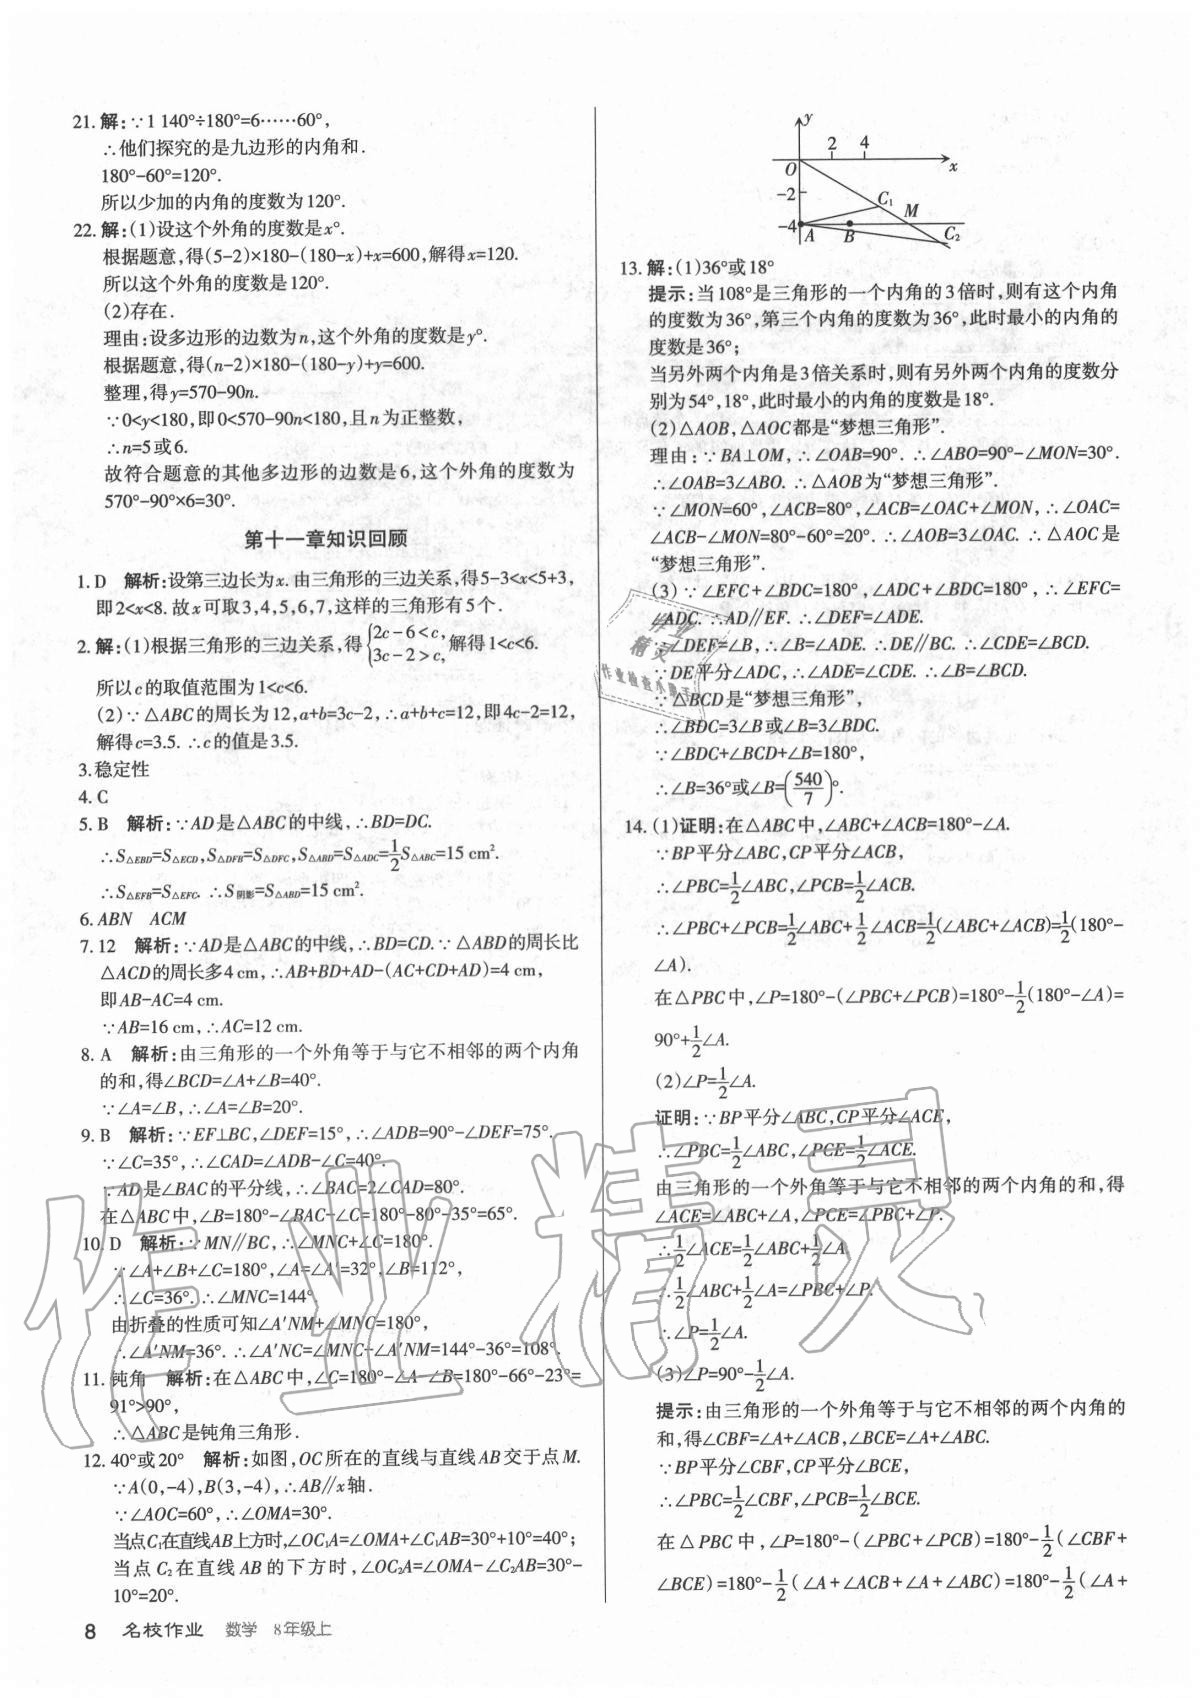 21.解:∵1 140°÷180°=6……60°,
∴他们探究的是九边形的内角和.
180°-60°=120°.
所以少加的内角的度数为120°.
22.解:(1)设这个外角的度数是x°.
根据题意,得(5-2)×180-(180-x)+x=600,解得x=120.
所以这个外角的度数是120°.
(2)存在.
理由:设多边形的边数为n,这个外角的度数是y°.
根据题意,得(n-2)×180-(180-y)+y=600.
整理,得y=570-90n.
∵0<y<180,即0<570-90n<180,且n为正整数,
∴n=5或6.
故符合题意的其他多边形的边数是6,这个外角的度数为
570°-90°×6=30°.
第十一章知识回顾
1.D 解析:设第三边长为x.由三角形的三边关系,得5-3<x<5+3,
即2<x<8.故x可取3,4,5,6,7,这样的三角形有5个.
2.解:(1)根据三角形的三边关系,得{2c-6<c, 3c-2>c, 解得1<c<6.
所以c的取值范围为1<c<6.
(2)∵△ABC的周长为12,a+b=3c-2,∴a+b+c=12,即4c-2=12,
解得c=3.5.∴c的值是3.5.
3.稳定性
4.C
5.B 解析:∵AD是△ABC的中线,∴BD=DC.
∴S△EBD=S△ECD,S△DFB=S△DFC,S△ABD=S△ADC=1/2S△ABC=15 cm².
∴S△EFB=S△EFC.∴S阴影=S△ABD=15 cm².
6.ABN ACM
7.12 解析:∵AD是△ABC的中线,∴BD=CD.∵△ABD的周长比
△ACD的周长多4 cm,∴AB+BD+AD-(AC+CD+AD)=4 cm,
即AB-AC=4 cm.
∵AB=16 cm,∴AC=12 cm.
8.A 解析:由三角形的一个外角等于与它不相邻的两个内角
的和,得∠BCD=∠A+∠B=40°.
∵∠A=∠B,∴∠A=∠B=20°.
9.B 解析:∵EF⊥BC,∠DEF=15°,∴∠ADB=90°-∠DEF=75°.
∵∠C=35°,∴∠CAD=∠ADB-∠C=40°.
∵AD是∠BAC的平分线,∴∠BAC=2∠CAD=80°.
在△ABC中,∠B=180°-∠BAC-∠C=180°-80°-35°=65°.
10.D 解析:∵MN∥BC,∴∠MNC+∠C=180°.
∵∠A+∠B+∠C=180°,∠A=∠A′=32°,∠B=112°,
∴∠C=36°.∴∠MNC=144°.
由折叠的性质可知∠A′NM+∠MNC=180°,
∴∠A′NM=36°.∴∠A′NC=∠MNC-∠A′NM=144°-36°=108°.
11.钝角 解析:在△ABC中,∠C=180°-∠A-∠B=180°-66°-23°=
91°>90°,
∴△ABC是钝角三角形.
12.40°或20° 解析:如图,OC所在的直线与直线AB交于点M.
∵A(0,-4),B(3,-4),∴AB∥x轴.
∵∠AOC=60°,∴∠OMA=30°.
当点C₁在直线AB上方时,∠OC₁A=∠OMA+∠C₁AB=30°+10°=40°;
当点C₂在直线AB的下方时,∠OC₂A=∠OMA-∠C₂AB=30°-
10°=20°.
8 名校作业 数学 8年级上
y
2 4
O x
-2 C₁ M
-4 A B C₂
13.解:(1)36°或18°
提示:当108°是三角形的一个内角的3倍时,则有这个内角
的度数为36°,第三个内角的度数为36°,此时最小的内角的
度数是36°;
当另外两个内角是3倍关系时,则有另外两个内角的度数分
别为54°,18°,此时最小的内角的度数是18°.
(2)△AOB,△AOC都是“梦想三角形”.
理由:∵BA⊥OM,∴∠OAB=90°.∴∠ABO=90°-∠MON=30°.
∴∠OAB=3∠ABO.∴△AOB为“梦想三角形”.
∵∠MON=60°,∠ACB=80°,∠ACB=∠OAC+∠MON,∴∠OAC=
∠ACB-∠MON=80°-60°=20°.∴∠AOB=3∠OAC.∴△AOC是
“梦想三角形”.
(3)∵∠EFC+∠BDC=180°,∠ADC+∠BDC=180°,∴∠EFC=
∠ADC.∴AD∥EF.∴∠DEF=∠ADE.
∵∠DEF=∠B,∴∠B=∠ADE.∴DE∥BC.∴∠CDE=∠BCD.
∵DE平分∠ADC,∴∠ADE=∠CDE.∴∠B=∠BCD.
∵△BCD是“梦想三角形”,
∴∠BDC=3∠B或∠B=3∠BDC.
∵∠BDC+∠BCD+∠B=180°,
∴∠B=36°或∠B=(540/7)°.
14.(1)证明:在△ABC中,∠ABC+∠ACB=180°-∠A.
∵BP平分∠ABC,CP平分∠ACB,
∴∠PBC=1/2∠ABC,∠PCB=1/2∠ACB.
∴∠PBC+∠PCB=1/2∠ABC+1/2∠ACB=1/2(∠ABC+∠ACB)=1/2(180°-
∠A).
在△PBC中,∠P=180°-(∠PBC+∠PCB)=180°-1/2(180°-∠A)=
90°+1/2∠A.
(2)∠P=1/2∠A.
证明:∵BP平分∠ABC,CP平分∠ACE,
∴∠PBC=1/2∠ABC,∠PCE=1/2∠ACE.
由三角形的一个外角等于与它不相邻的两个内角的和,得
∠ACE=∠ABC+∠A,∠PCE=∠PBC+∠P.
∴1/2∠ACE=1/2∠ABC+1/2∠A.
∴1/2∠ABC+1/2∠A=∠PBC+∠P.
∴∠P=1/2∠A.
(3)∠P=90°-1/2∠A.
提示:由三角形的一个外角等于与它不相邻的两个内角的
和,得∠CBF=∠A+∠ACB,∠BCE=∠A+∠ABC.
∵BP平分∠CBF,CP平分∠BCE,
∴∠PBC=1/2∠CBF,∠PCB=1/2∠BCE.
在△PBC中,∠P=180°-(∠PBC+∠PCB)=180°-1/2(∠CBF+
∠BCE)=180°-1/2(∠A+∠ACB+∠A+∠ABC)=180°-1/2(∠A+
作业精灵
作业
精灵